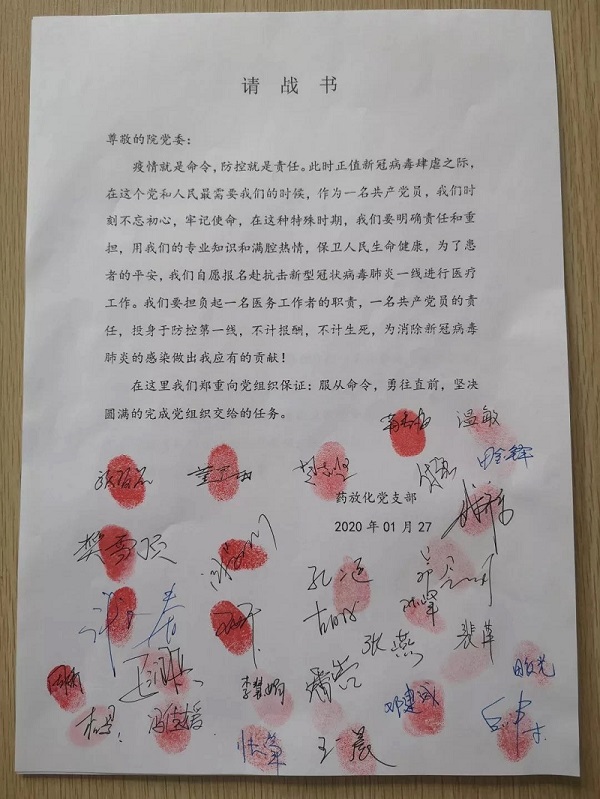 请战书
尊敬的院党委：
疫情就是命令，防控就是责任。此时正值新冠病毒肆虐之际，
在这个党和人民最需要我们的时候，作为一名共产党员，我们时
刻不忘初心，牢记使命，在这种特殊时期，我们要明确责任和重
担，用我们的专业知识和满腔热情，保卫人民生命健康，为了患
者的平安，我们自愿报名赴抗击新型冠状病毒肺炎一线进行医疗
工作。我们要担负起一名医务工作者的职责，一名共产党员的责
任，投身于防控第一线，不计报酬，不计生死，为消除新冠病毒
肺炎的感染做出我应有的贡献！
在这里我们郑重向党组织保证：服从命令，勇往直前，坚决
圆满的完成党组织交给的任务。
温敏
药放化党支部
2020 年 01 月 27
樊雪
张燕
裴萍
李慧娟
邓建诚
冯俊媛
王晨